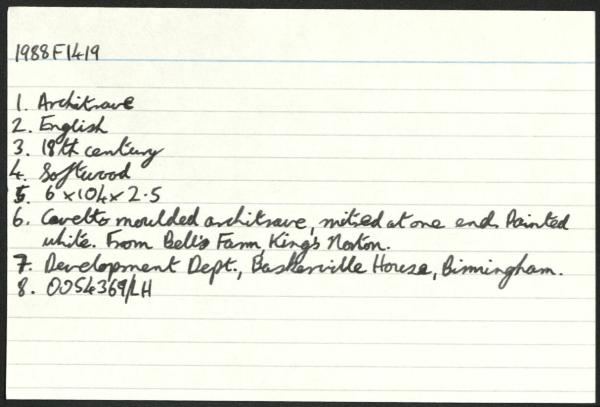 1988F1419
1. Architrave
2. English
3. 18th century
4. Softwood
5. 6 x 104 x 2.5
6. Cavetto moulded architrave, mitred at one end. Painted
white. From Bells Farm, King's Norton.
7. Development Dept., Baskerville House, Birmingham.
8. 0054369/LH